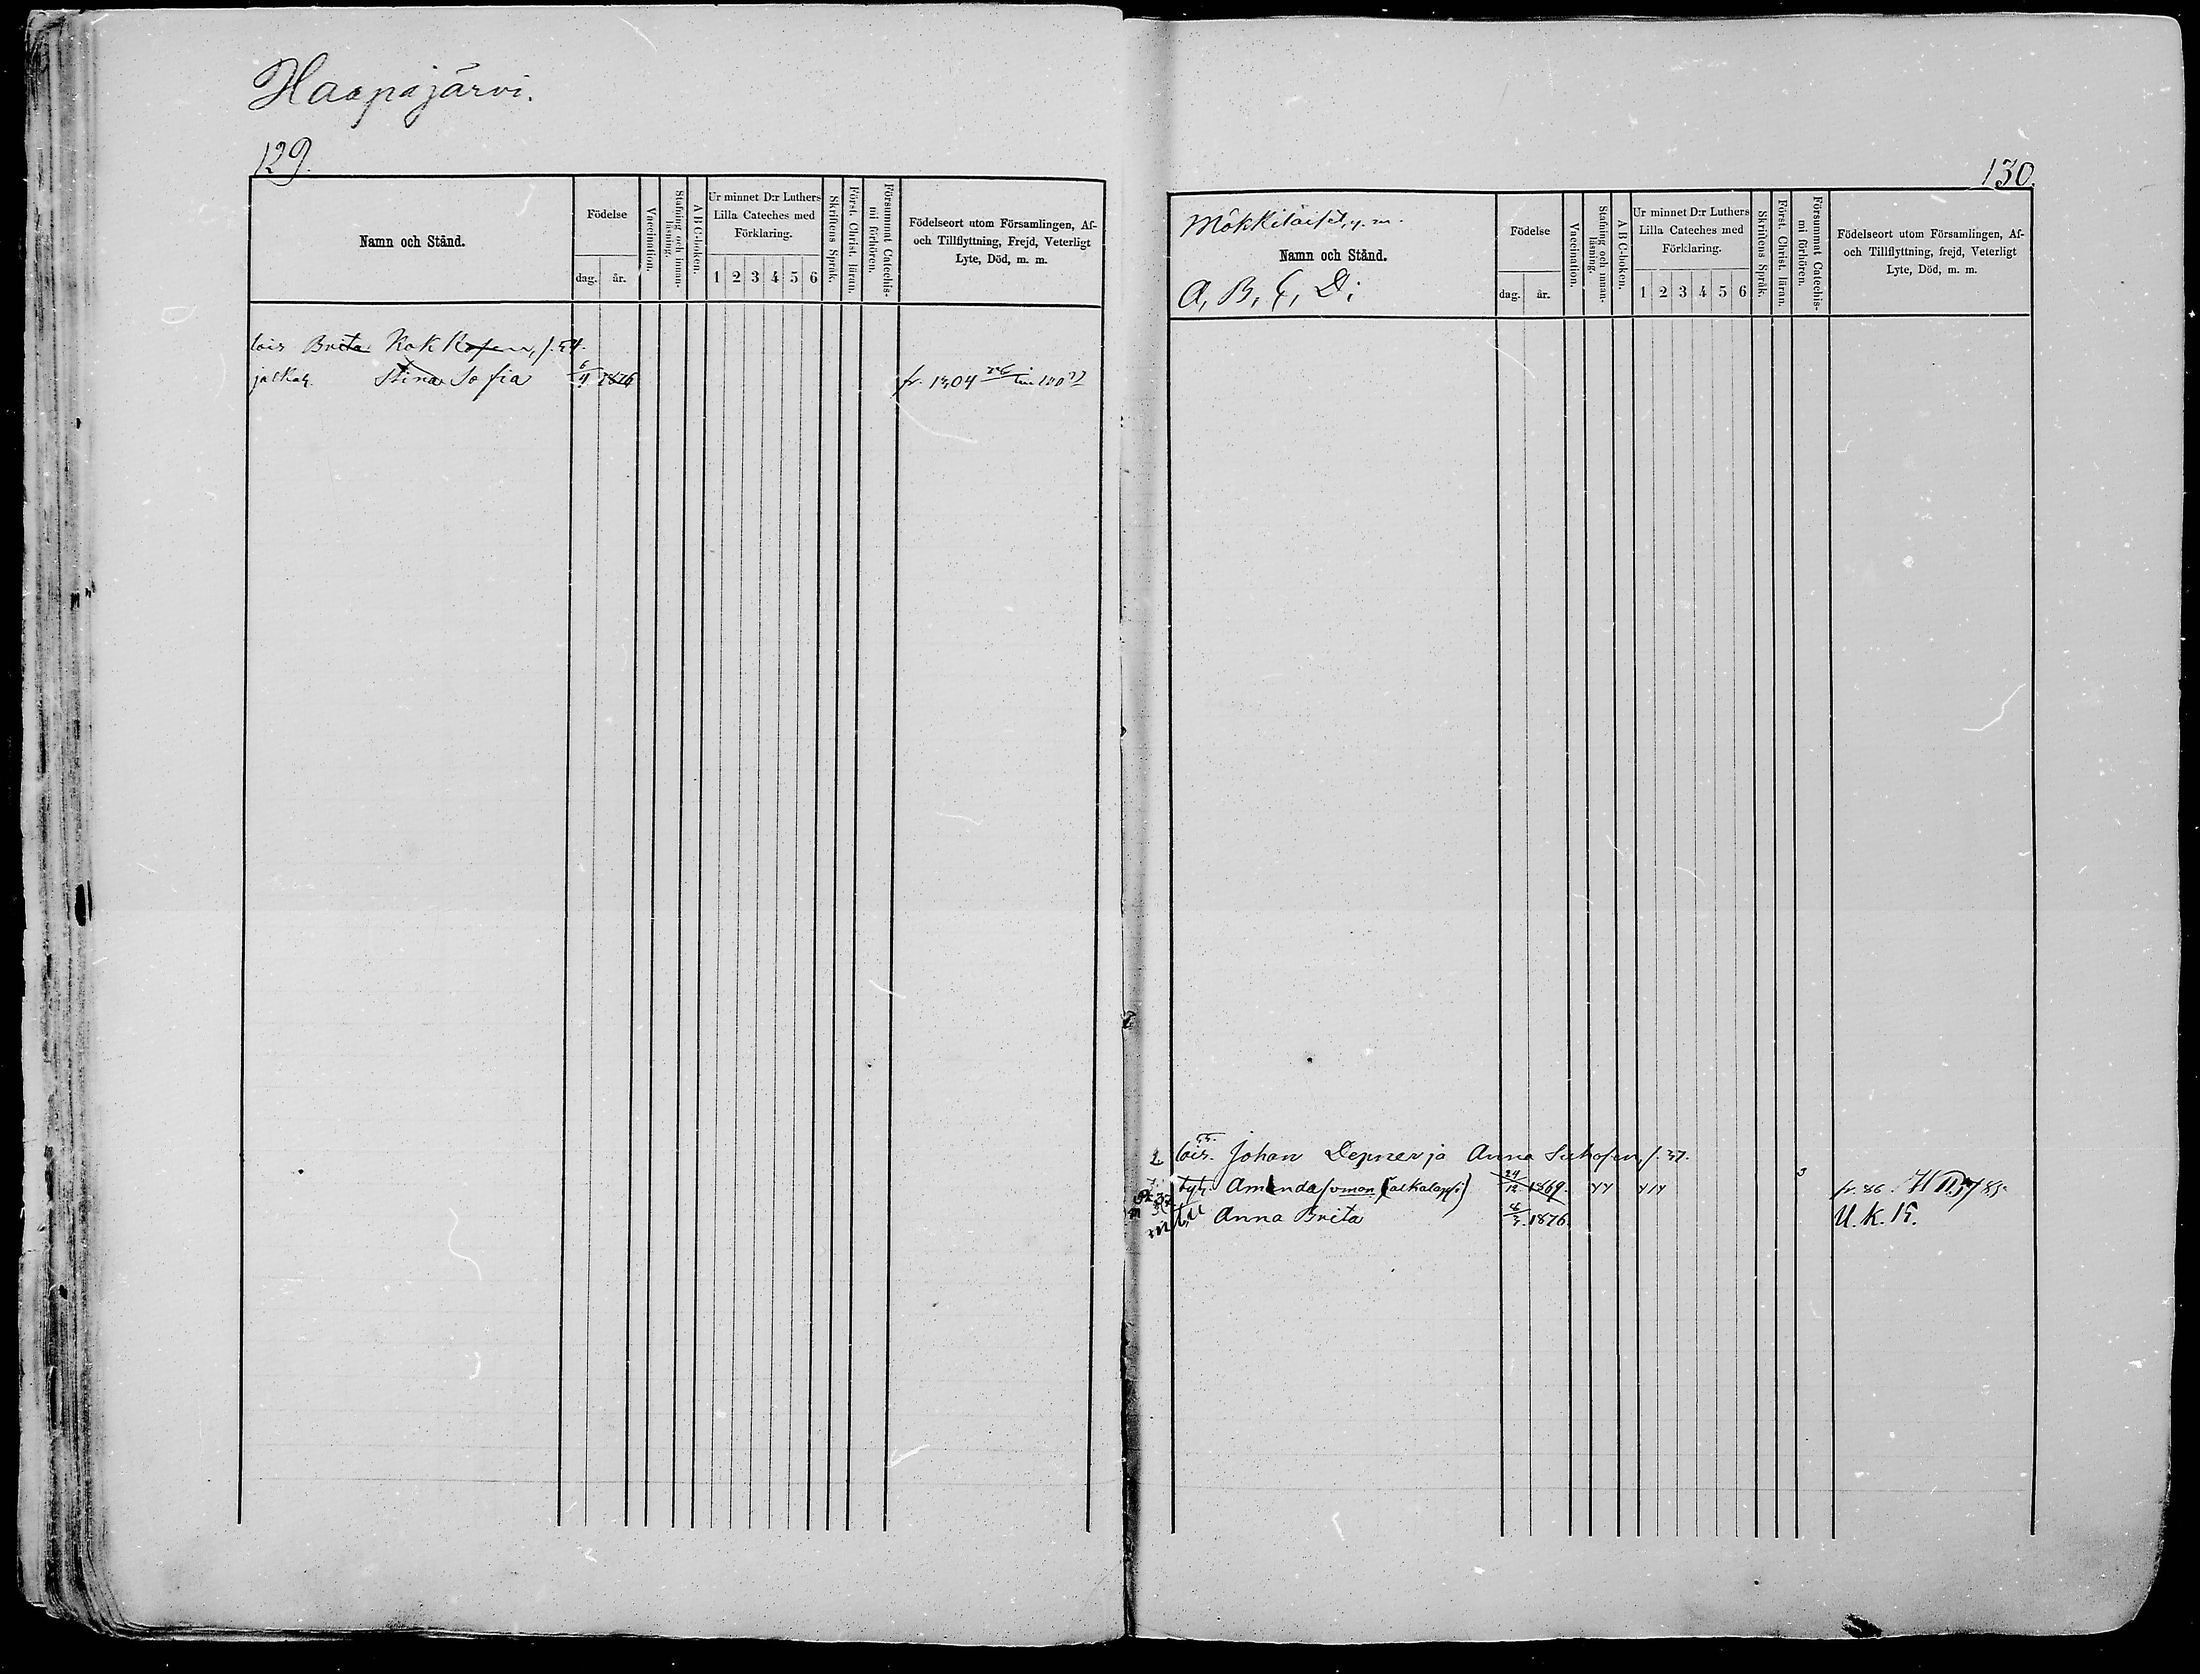 Haapajärvi.
129.
Namn och Stånd.
Födelse
dag. år.
Vaccination.
Stafning och innan-läsning.
A B C-boken.
Ur minnet D:r Luthers
Lilla Cateches med
Förklaring.
1 2 3 4 5 6
Skriftens Språk.
Först. Christ. läran.
Försummat Catechis-
mi förhören.
Födelseort utom Församlingen, Af-
och Tillflyttning, Frejd, Veterligt
Lyte, Död, m. m.
lois Brita Kokkosen, s. 54.
jalkal. Stina Sofia 6/4 1876 fr. 1304
130.
Mökkiläiset, y. m.
Namn och Stånd.
A, B, C, D;
Födelse
dag. år.
Vaccination.
Stafning och innan-läsning.
A B C-boken.
Ur minnet D:r Luthers
Lilla Cateches med
Förklaring.
1 2 3 4 5 6
Skriftens Språk.
Först. Christ. läran.
Försummat Catechis-
mi förhören.
Födelseort utom Församlingen, Af-
och Tillflyttning, frejd, Veterligt
Lyte, Död, m. m.
lois. Johan Depner ja Anna s. 37.
tyt. Amanda 24/12 1869. fr. 86.
Anna Brita 1876. U. K. 15.